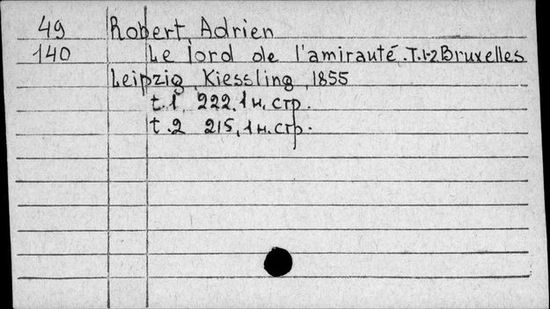 49 Robert, Adrien
140 Le lord de l'amirauté. T.1-2 Bruxelles
Leipzig, Kiessling, 1855
t.1 222, 1 н. стр.
t.2 215, 1 н. стр.